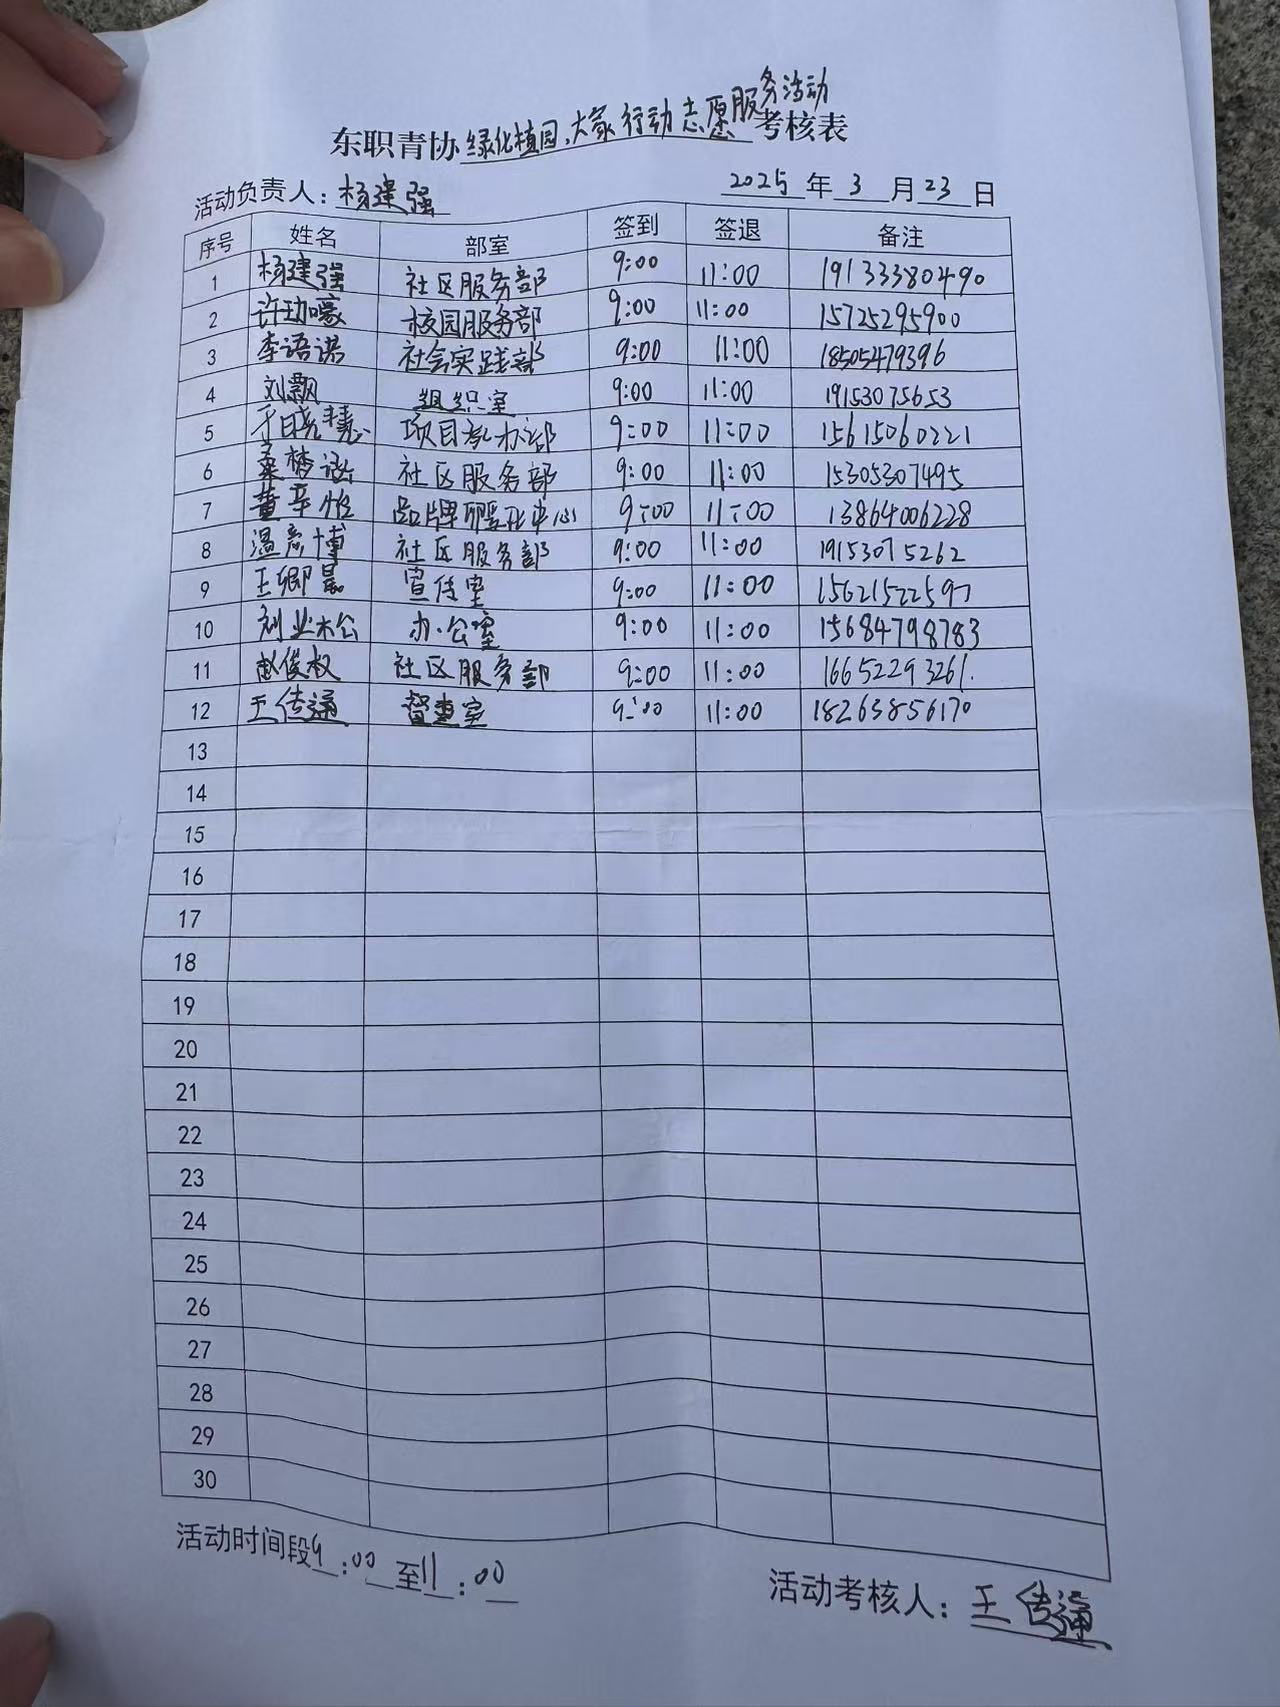 东职青协绿化植园、大家行动志愿服务活动考核表
活动负责人：杨建强 2025年3月23日
序号 姓名 部室 签到 签退 备注
1 杨建强 社区服务部 9:00 11:00 19133380490
2 校园服务部 9:00 11:00 15725295900
3 李语诺 社会实践部 9:00 11:00 18505479396
4 刘飘 组织室 9:00 11:00 19153075653
5 9:00 11:00 15615060221
6 桑梦涵 社区服务部 9:00 11:00 15305307495
7 品牌孵化中心 9:00 11:00 13864006228
8 温彦博 社区服务部 9:00 11:00 19153075262
9 王卿晨 宣传室 9:00 11:00 15621522597
10 刘业松 办公室 9:00 11:00 15684798783
11 赵俊权 社区服务部 9:00 11:00 16652293261.
12 王传通 督查室 9:00 11:00 18263856170
13
14
15
16
17
18
19
20
21
22
23
24
25
26
27
28
29
30
活动时间段9:00至11:00
活动考核人：王传通